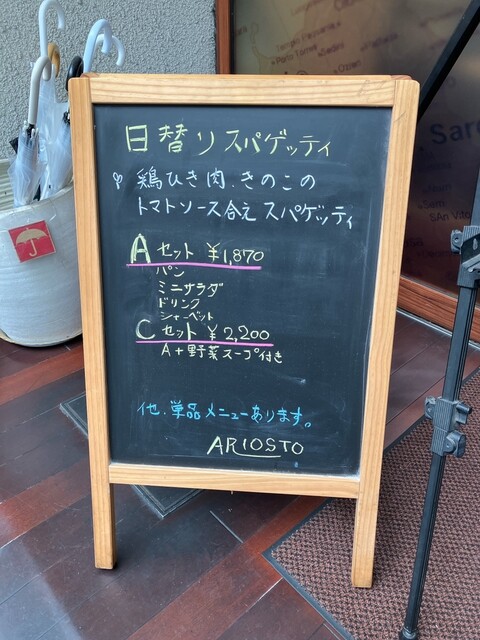 日替りスパゲッティ
鶏ひき肉.きのこの
トマトソース合え スパゲッティ
Aセット ¥1,870
パン
ミニサラダ
ドリンク
シャーベット
Cセット ¥2,200
A+野菜スープ付き
他.単品メニューあります。
ARIOSTO